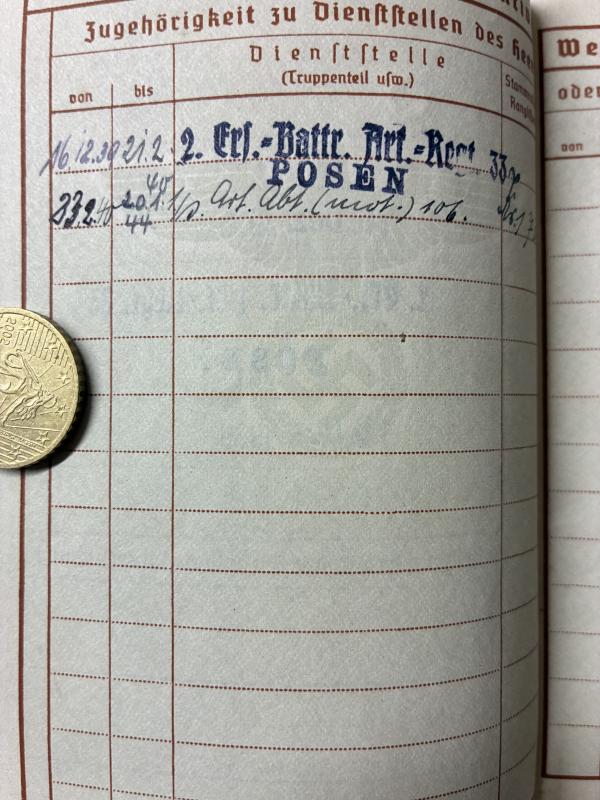 Zugehörigkeit zu Dienststellen des Heer
Dienststelle
(Truppenteil usw.)
von bis
Stamm
Rangl
16.12.39 21.2. 2. Ers.-Battr. Art.-Regt. 33
40 POSEN
20.1.
44 Art. Abt. (mot.) 106.
We
oder
von
2002